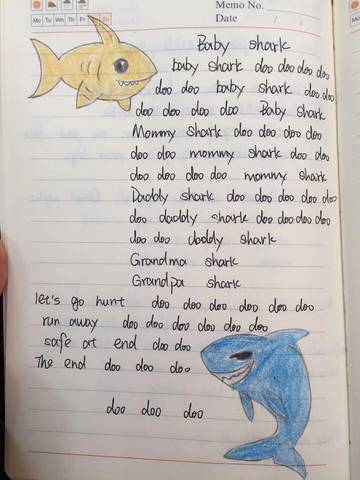 Memo No.
Mo Tu We Th Fr Sa Su
Date / /
Baby shark
baby shark doo doo doo doo
doo doo baby shark doo doo
doo doo doo doo Baby shark
Mommy shark doo doo doo doo
doo doo mommy shark doo doo
doo doo doo doo mommy shark
Daddy shark doo doo doo doo doo
doo daddy shark doo doo doo doo
doo doo daddy shark
Grandma shark
Grandpa shark
let's go hunt doo doo doo doo doo doo
run away doo doo doo doo doo doo
safe at end doo doo
The end doo doo doo
doo doo doo